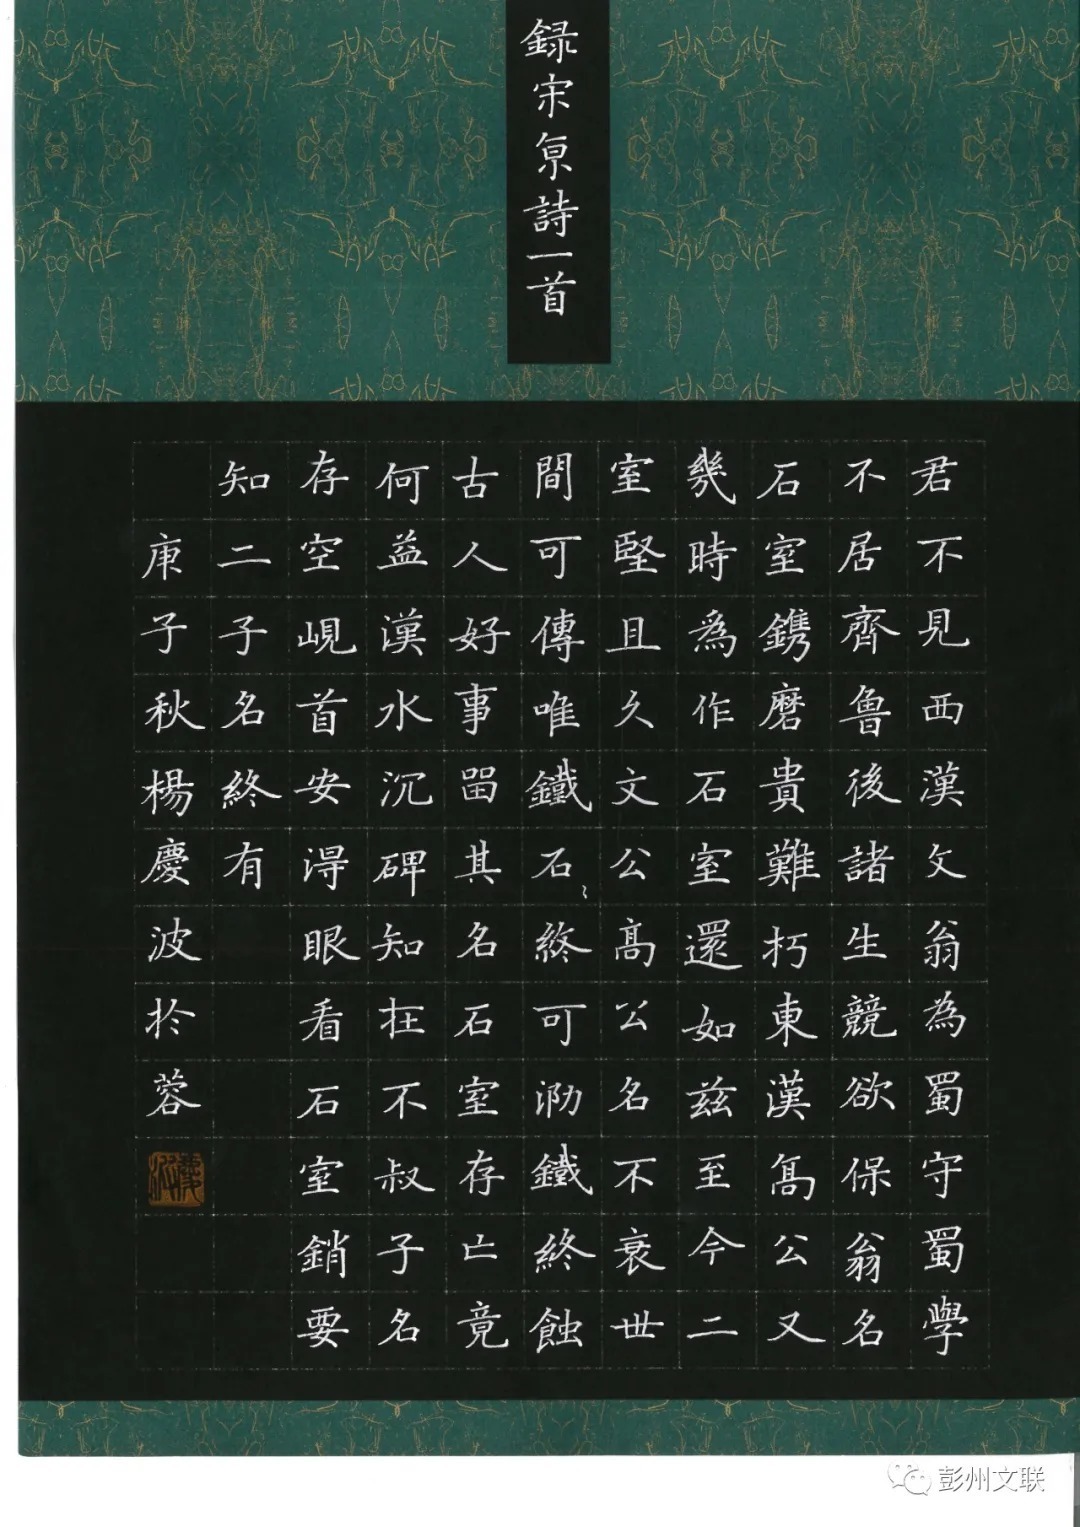 録宋京詩一首
君不見西漢文翁為蜀守蜀學
不居齊魯後諸生競欲保翁名
石室鐫磨貴難朽東漢高公又
幾時為作石室還如兹至今二
室堅且久文公高公名不衰世
間可傳唯鐵石〻終可泐鐵終蝕
古人好事畱其名石室存亡竟
何益漢水沉碑知在不叔子名
存空峴首安得眼看石室銷要
知二子名終有
庚子秋楊慶波於蓉
彭州文联